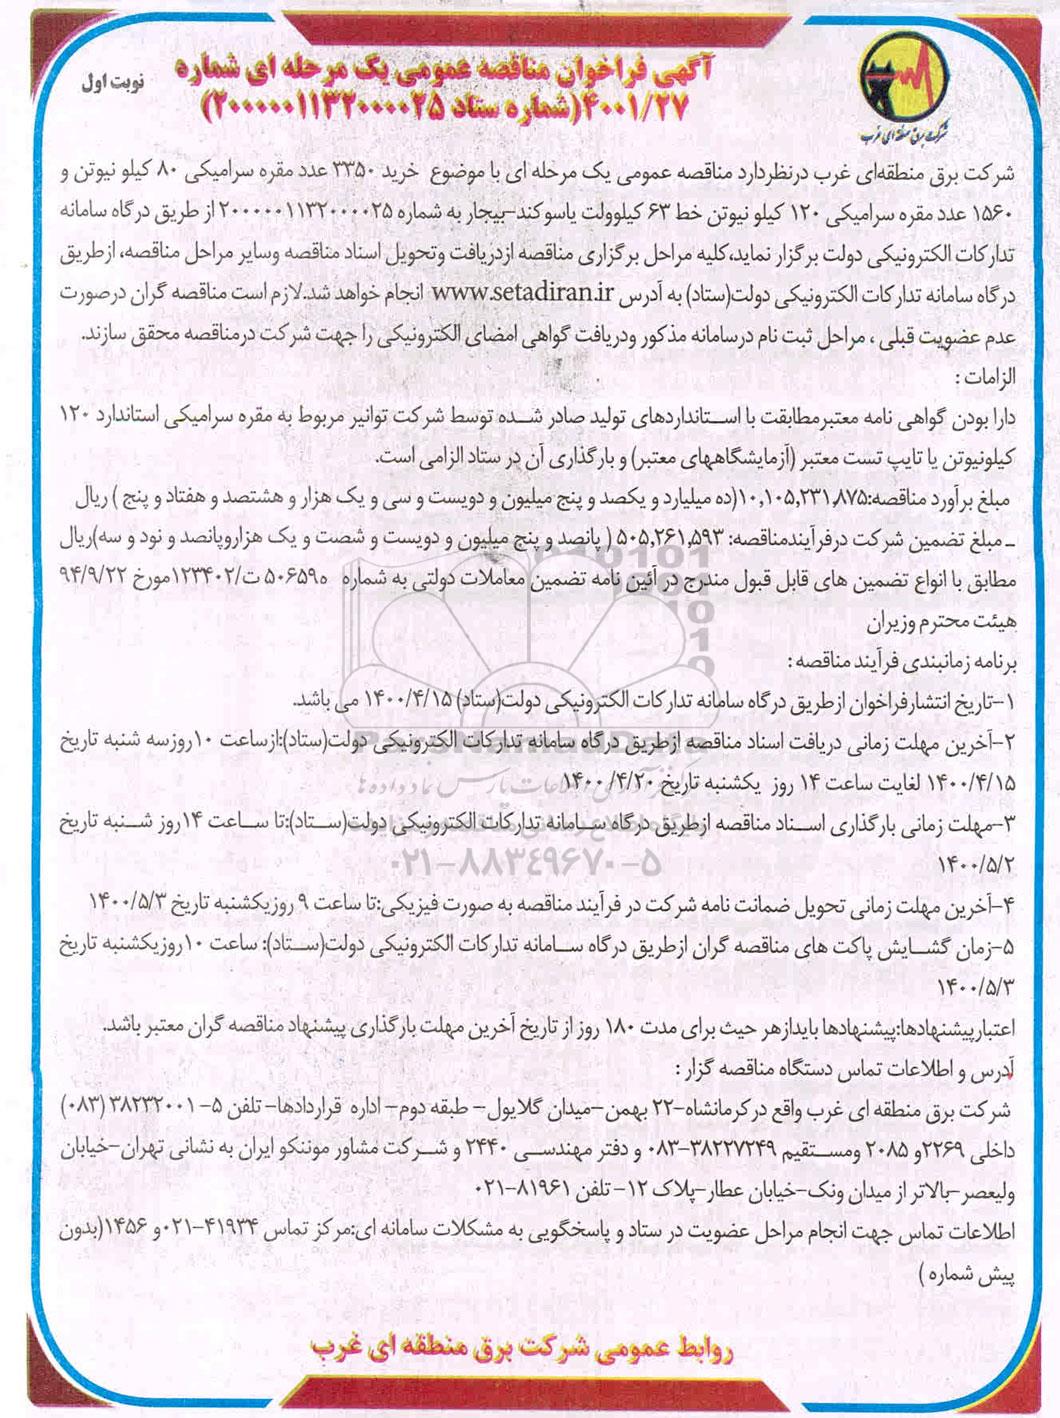 شرکت برق منطقه‌ای غرب
نوبت اول
آگهی فراخوان مناقصه عمومی یک مرحله ای شماره
۴۰۰۱/۲۷(شماره ستاد ۲۰۰۰۰۰۱۱۳۲۰۰۰۰۲۵)
شرکت برق منطقه‌ای غرب درنظردارد مناقصه عمومی یک مرحله ای با موضوع خرید ۳۳۵۰ عدد مقره سرامیکی ۸۰ کیلو نیوتن و
۱۵۶۰ عدد مقره سرامیکی ۱۲۰ کیلو نیوتن خط ۶۳ کیلوولت یاسوکند-بیجار به شماره ۲۰۰۰۰۰۱۱۳۲۰۰۰۰۲۵ از طریق درگاه سامانه
تدارکات الکترونیکی دولت برگزار نماید،کلیه مراحل برگزاری مناقصه ازدریافت وتحویل اسناد مناقصه وسایر مراحل مناقصه، ازطریق
درگاه سامانه تدارکات الکترونیکی دولت(ستاد) به آدرس www.setadiran.ir انجام خواهد شد.لازم است مناقصه گران درصورت
عدم عضویت قبلی ، مراحل ثبت نام درسامانه مذکور ودریافت گواهی امضای الکترونیکی را جهت شرکت درمناقصه محقق سازند.
الزامات :
دارا بودن گواهی نامه معتبرمطابقت با استانداردهای تولید صادر شده توسط شرکت توانیر مربوط به مقره سرامیکی استاندارد ۱۲۰
کیلونیوتن یا تایپ تست معتبر (آزمایشگاههای معتبر) و بارگذاری آن در ستاد الزامی است.
مبلغ برآورد مناقصه:۱۰,۱۰۵,۲۳۱,۸۷۵(ده میلیارد و یکصد و پنج میلیون و دویست و سی و یک هزار و هشتصد و هفتاد و پنج ) ریال
ـ مبلغ تضمین شرکت درفرآیندمناقصه: ۵۰۵,۲۶۱,۵۹۳ ( پانصد و پنج میلیون و دویست و شصت و یک هزاروپانصد و نود و سه)ریال
مطابق با انواع تضمین های قابل قبول مندرج در آئین نامه تضمین معاملات دولتی به شماره ۵۰۶۵۹ه ت/۱۲۳۴۰۲مورخ ۹۴/۹/۲۲
هیئت محترم وزیران
برنامه زمانبندی فرآیند مناقصه :
۱-تاریخ انتشارفراخوان ازطریق درگاه سامانه تدارکات الکترونیکی دولت(ستاد) ۱۴۰۰/۴/۱۵ می باشد.
۲-آخرین مهلت زمانی دریافت اسناد مناقصه ازطریق درگاه سامانه تدارکات الکترونیکی دولت(ستاد):ازساعت ۱۰روزسه شنبه تاریخ
۱۴۰۰/۴/۱۵ لغایت ساعت ۱۴ روز یکشنبه تاریخ ۱۴۰۰/۴/۲۰
۳-مهلت زمانی بارگذاری اسناد مناقصه ازطریق درگاه سامانه تدارکات الکترونیکی دولت(ستاد):تا ساعت ۱۴روز شنبه تاریخ
۱۴۰۰/۵/۲
۰۲۱-۸۸۳۴۹۶۷۰-۵
۴-آخرین مهلت زمانی تحویل ضمانت نامه شرکت در فرآیند مناقصه به صورت فیزیکی:تا ساعت ۹ روزیکشنبه تاریخ ۱۴۰۰/۵/۳
۵-زمان گشایش پاکت های مناقصه گران ازطریق درگاه سامانه تدارکات الکترونیکی دولت(ستاد): ساعت ۱۰روزیکشنبه تاریخ
۱۴۰۰/۵/۳
اعتبارپیشنهادها:پیشنهادها بایدازهر حیث برای مدت ۱۸۰ روز از تاریخ آخرین مهلت بارگذاری پیشنهاد مناقصه گران معتبر باشد.
آدرس و اطلاعات تماس دستگاه مناقصه گزار :
شرکت برق منطقه ای غرب واقع درکرمانشاه-۲۲ بهمن-میدان گلایول- طبقه دوم- اداره قراردادها- تلفن ۵-۳۸۲۳۲۰۰۱ (۰۸۳)
داخلی ۲۲۶۹و ۲۰۸۵ ومستقیم ۳۸۲۲۷۲۴۹-۰۸۳ و دفتر مهندسی ۲۴۴۰ و شرکت مشاور موننکو ایران به نشانی تهران-خیابان
ولیعصر-بالاتر از میدان ونک-خیابان عطار-پلاک ۱۲- تلفن ۸۱۹۶۱-۰۲۱
اطلاعات تماس جهت انجام مراحل عضویت در ستاد و پاسخگویی به مشکلات سامانه ای:مرکز تماس ۴۱۹۳۴-۰۲۱ و ۱۴۵۶(بدون
پیش شماره )
روابط عمومی شرکت برق منطقه ای غرب